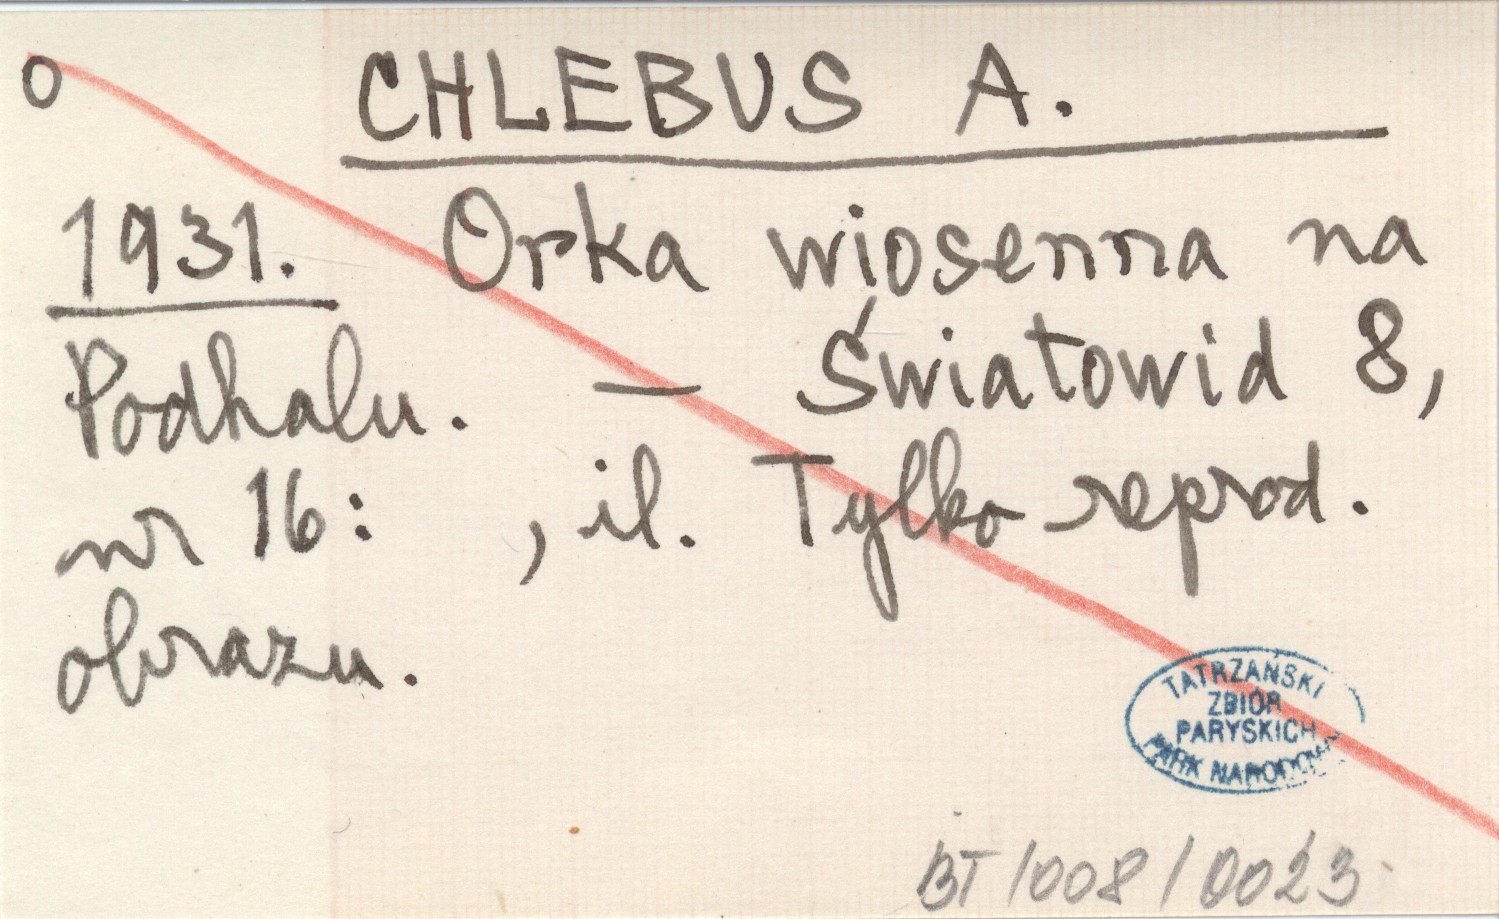 O CHLEBUS A.
1931. Orka wiosenna na
Podhalu. — Światowid 8,
nr 16: , il. Tylko reprod.
obrazu.
TATRZAŃSKI
ZBIÓR
PARYSKICH
PARK NARODOWY
BT/008/0023